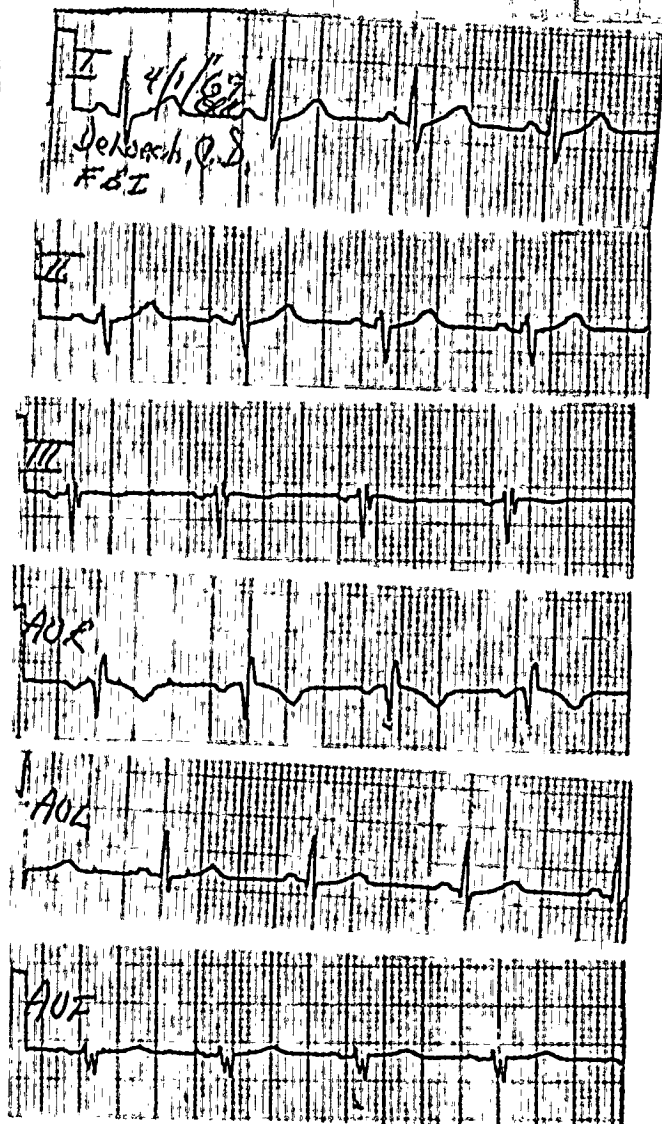 I
4/1/67
DeLoach, C.D.
FBI
II
III
AVR
AVL
AVF